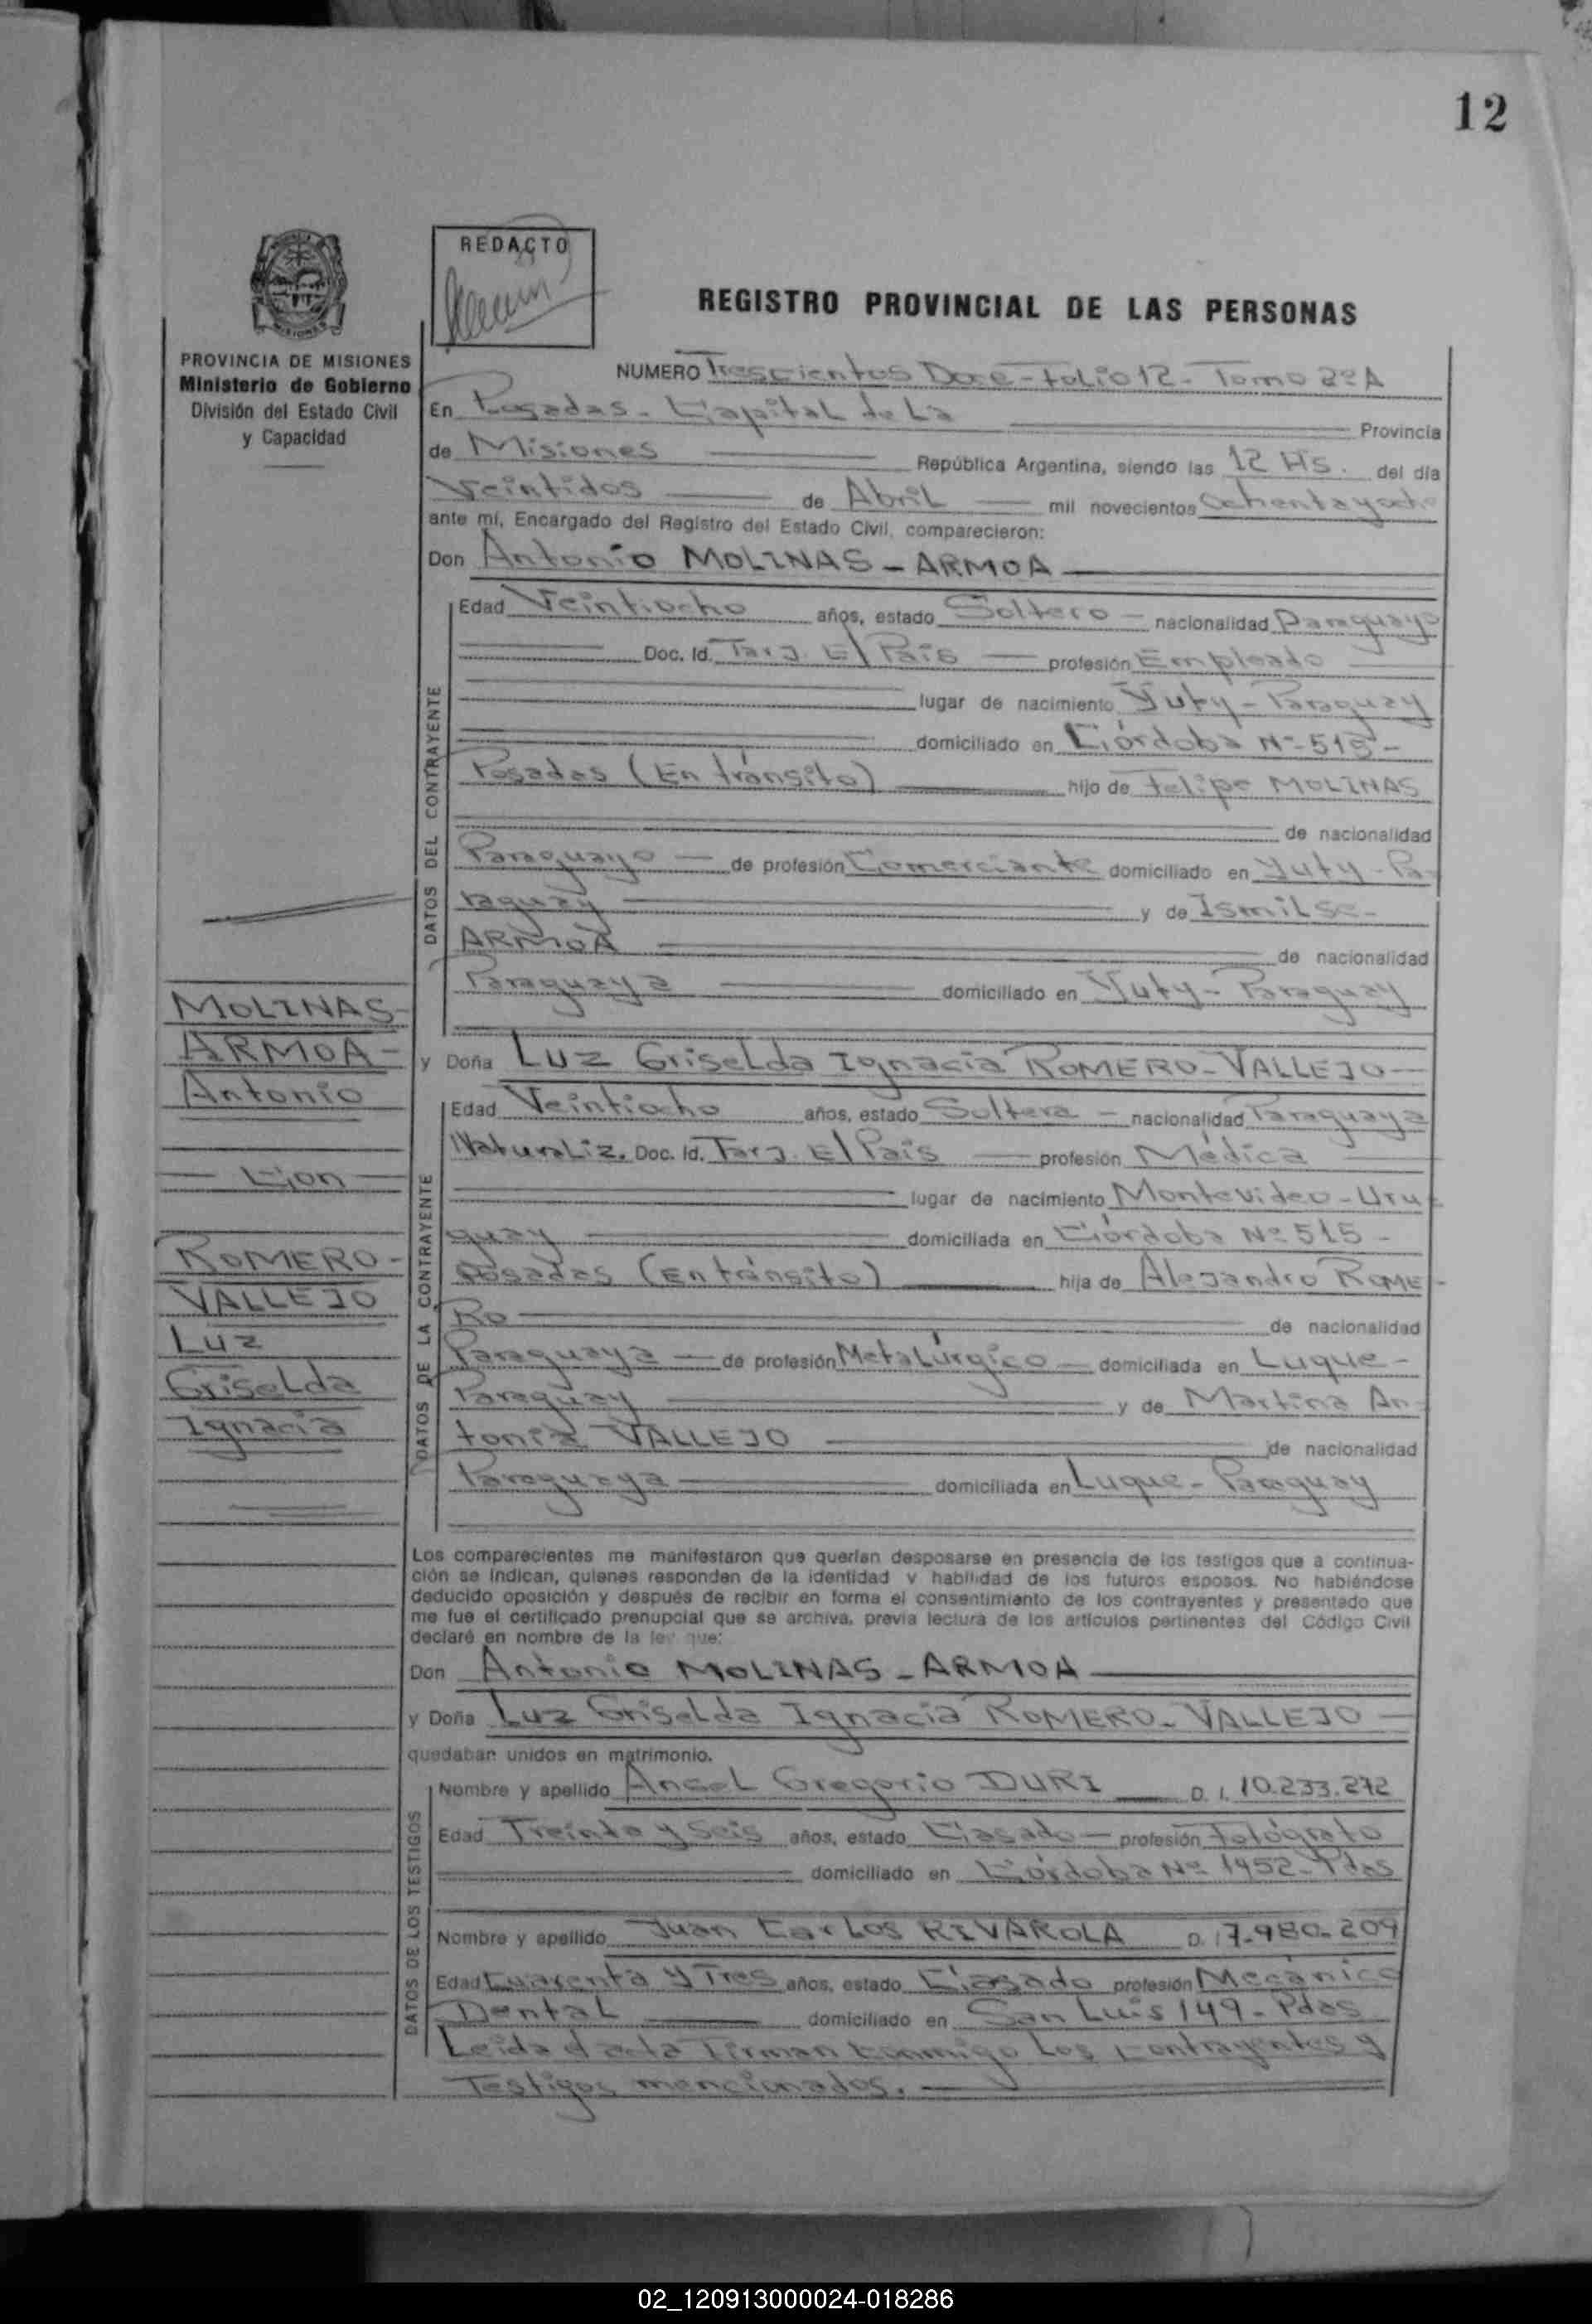 12
REDACTO
REGISTRO PROVINCIAL DE LAS PERSONAS
PROVINCIA DE MISIONES
Ministerio de Gobierno
División del Estado Civil
y Capacidad
NUMERO Trescientos Doce - Folio 12 - Tomo 2º A
En Posadas - Capital de La Provincia
de Misiones República Argentina, siendo las 12 Hs. del día
Veintidos de Abril mil novecientos Ochenta y ocho
ante mí, Encargado del Registro del Estado Civil, comparecieron:
Don Antonio MOLINAS - ARMOA
DATOS DEL CONTRAYENTE
Edad Veintiocho años, estado Soltero - nacionalidad Paraguayo
Doc. Id. Tarj. El País profesión Empleado
lugar de nacimiento Yuty - Paraguay
domiciliado en Córdoba Nº 515 -
Posadas (En tránsito) hijo de Felipe MOLINAS
de nacionalidad
Paraguayo - de profesión Comerciante domiciliado en Yuty - Pa-
raguay y de Ismilse -
ARMOA de nacionalidad
Paraguaya domiciliado en Yuty - Paraguay
MOLINAS -
ARMOA -
Antonio
- Con -
ROMERO -
VALLEJO
Luz
Griselda
Ignacia
y Doña Luz Griselda Ignacia ROMERO - VALLEJO
DATOS DE LA CONTRAYENTE
Edad Veintiocho años, estado Soltera - nacionalidad Paraguaya
Naturaliz. Doc. Id. Tarj. El País profesión Médica
lugar de nacimiento Montevideo - Uru-
guay domiciliada en Córdoba Nº 515 -
Posadas (En tránsito) hija de Alejandro ROME-
RO de nacionalidad
Paraguaya - de profesión Metalúrgico - domiciliada en Luque -
Paraguay y de Martina An-
tonia VALLEJO de nacionalidad
Paraguaya domiciliada en Luque - Paraguay
Los comparecientes me manifestaron que querían desposarse en presencia de los testigos que a continua-
ción se indican, quienes responden de la identidad y habilidad de los futuros esposos. No habiéndose
deducido oposición y después de recibir en forma el consentimiento de los contrayentes y presentado que
me fue el certificado prenupcial que se archiva, previa lectura de los artículos pertinentes del Código Civil
declaré en nombre de la ley que:
Don Antonio MOLINAS - ARMOA
y Doña Luz Griselda Ignacia ROMERO - VALLEJO
quedaban unidos en matrimonio.
DATOS DE LOS TESTIGOS
Nombre y apellido Angel Gregorio DURI D. I. 10.233.272
Edad Treinta y Seis años, estado Casado - profesión Fotógrafo
domiciliado en Córdoba Nº 1452 - Pdas
Nombre y apellido Juan Carlos RIVAROLA D. I 7.980.209
Edad Cuarenta y Tres años, estado Casado profesión Mecánico
Dental domiciliado en San Luis 149 - Pdas
Leida el acta Firman conmigo Los contrayentes y
Testigos mencionados.
02_120913000024-018286